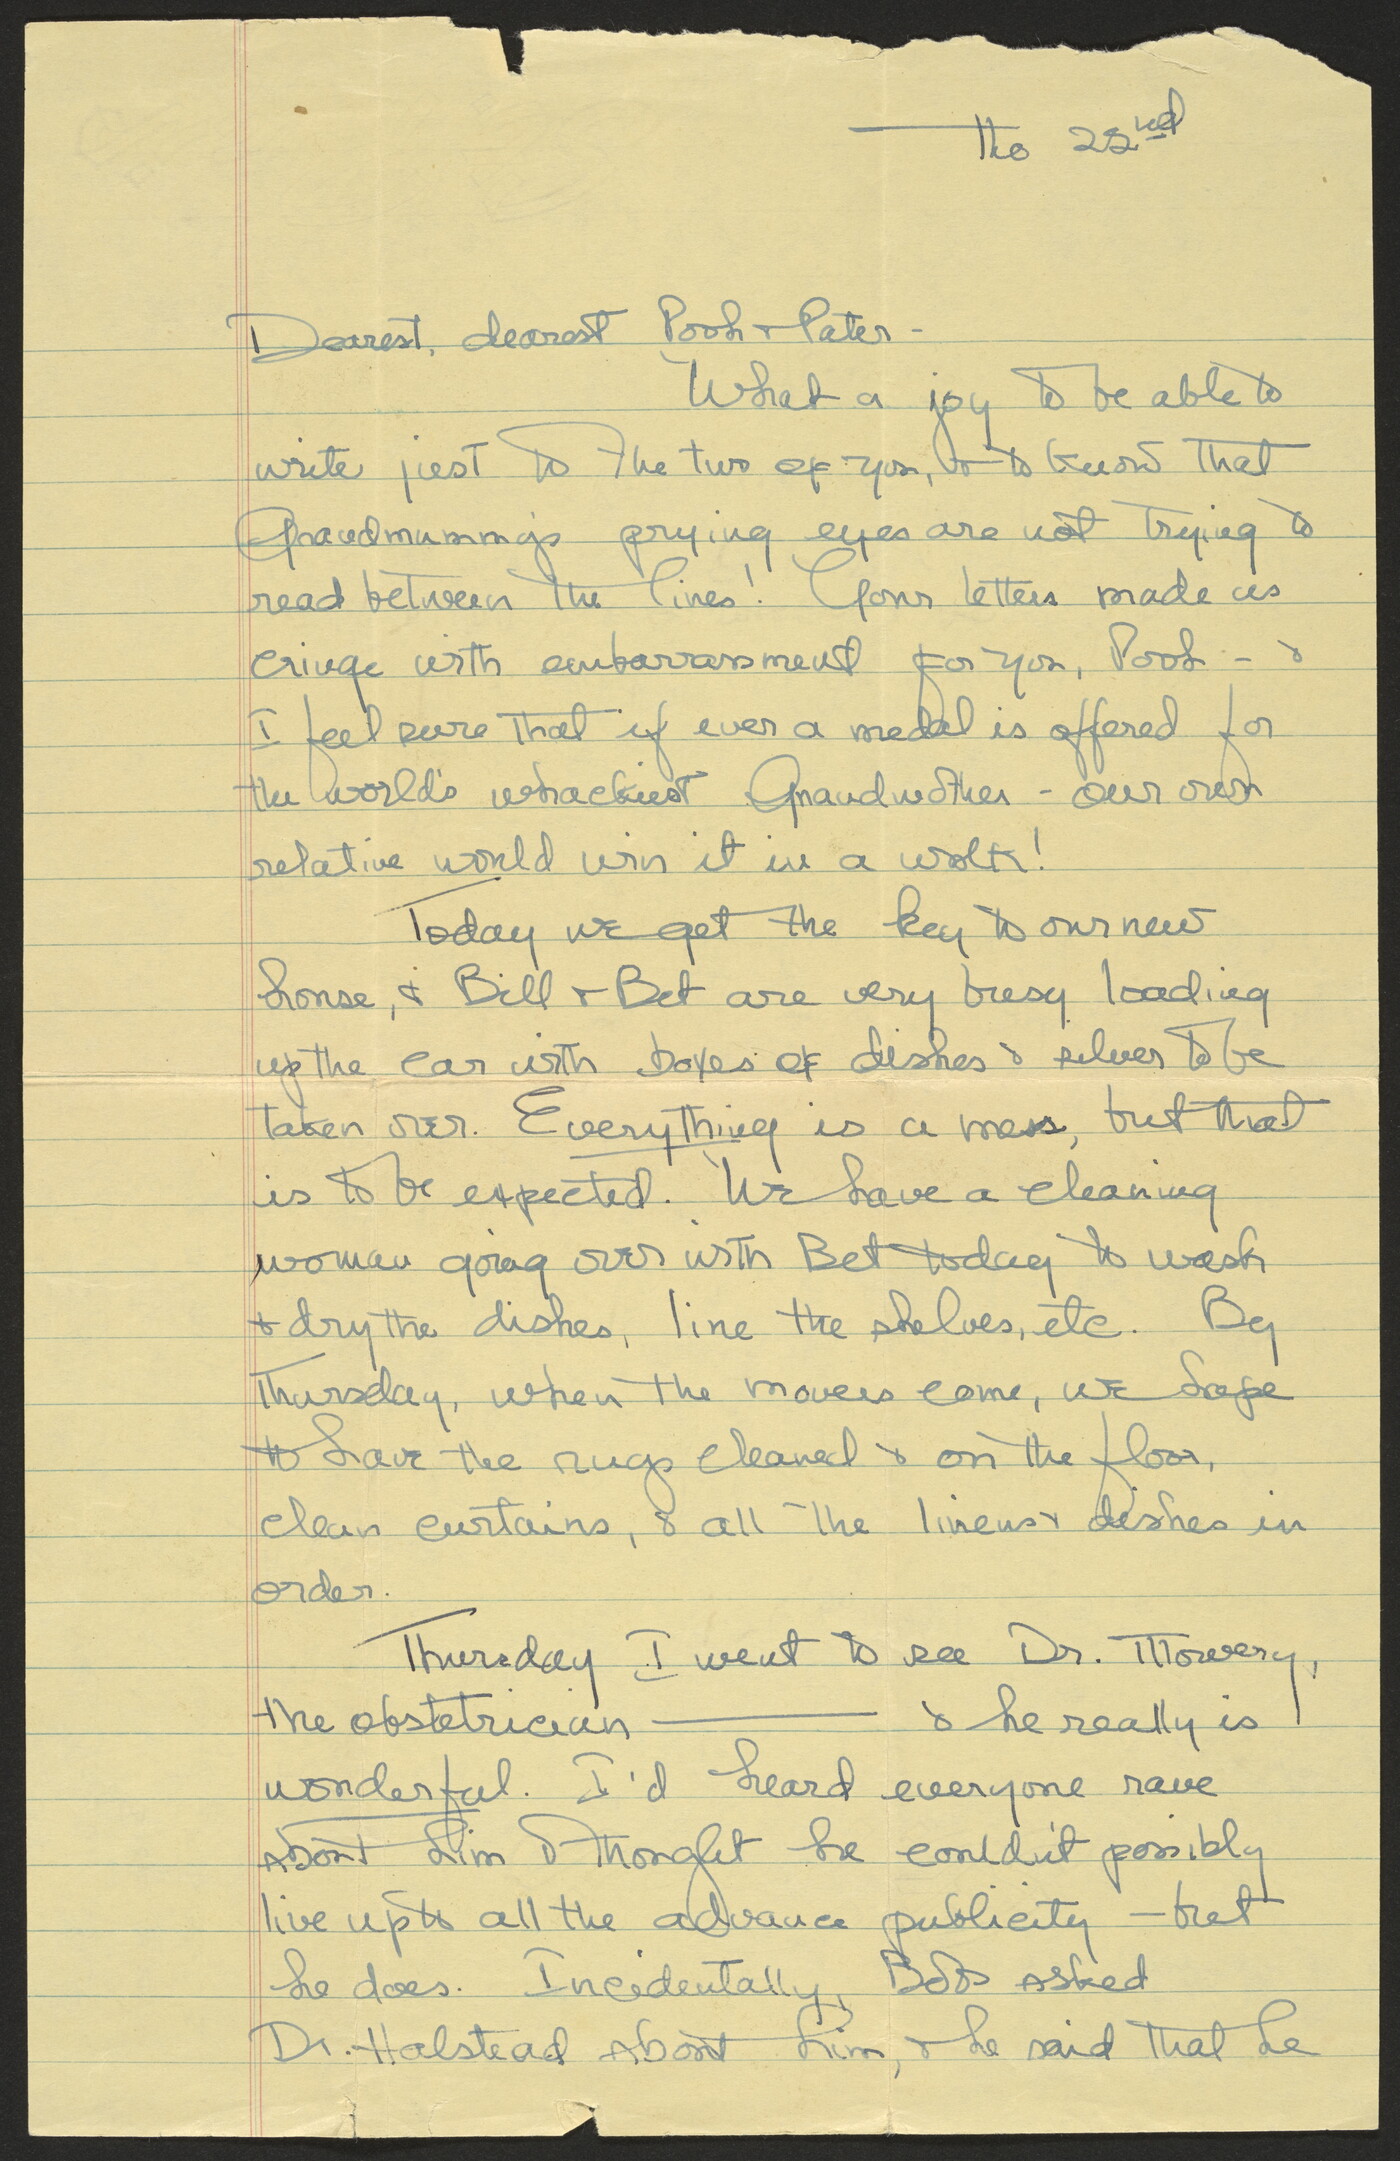 The 22nd
Dearest, dearest Pooh & Pater -
What a joy to be able to
write just to the two of you, & to know that
Grandmummy's prying eyes are not trying to
read between the lines! Your letters made us
cringe with embarrassment for you, Pooh - &
I feel sure that if ever a medal is offered for
the world's whackiest Grandmother - our own
relative would win it in a walk!
Today we get the key to our new
house, & Bill & Bet are very busy loading
up the car with boxes of dishes & silver to be
taken over. Everything is a mess, but that
is to be expected. We have a cleaning
woman going over with Bet today to wash
& dry the dishes, line the shelves, etc. By
Thursday, when the movers come, we hope
to have the rugs cleaned & on the floor,
clean curtains, & all the linens & dishes in
order.
Thursday I went to see Dr. Mowery,
the obstetrician ——— & he really is
wonderful. I'd heard everyone rave
about him & thought he couldn't possibly
live up to all the advance publicity - but
he does. Incidentally, Bob asked
Dr. Halstead about him, & he said that he